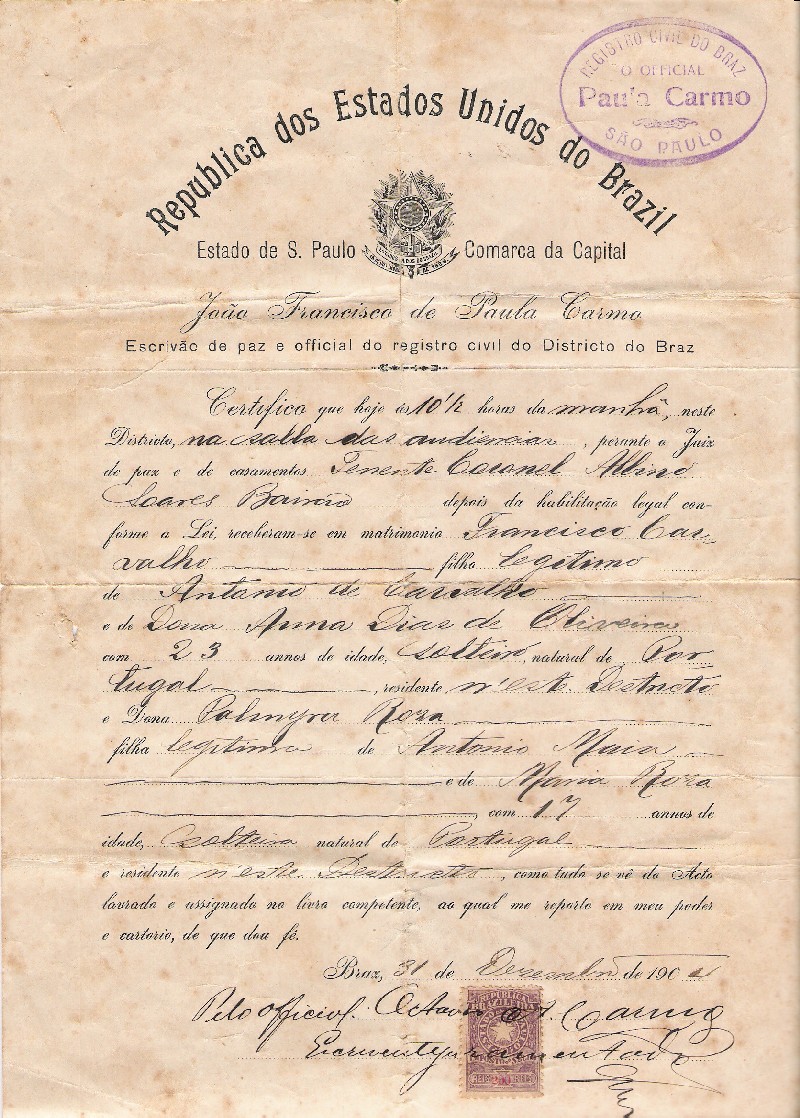 REGISTRO CIVIL DO BRAZ
O OFFICIAL
Paula Carmo
SÃO PAULO
Republica dos Estados Unidos do Brazil
Estado de S. Paulo Comarca da Capital
João Francisco de Paula Carmo
Escrivão de paz e official do registro civil do Districto do Braz
Certifica que hoje ás 10 1/2 horas da manhã, neste
Districto, na salla das audiencias, perante o Juiz
de paz e de casamentos Tenente Coronel Albino
Soares Bairão depois da habilitação legal con-
forme a Lei, receberam-se em matrimonio Francisco Car-
valho filho legitimo
de Antonio de Carvalho
e de Dona Anna Dias de Oliveira
com 23 annos de idade, solteiro, natural de Por-
tugal, residente n'este Destricto
e Dona Palmyra Roza
filha legitima de Antonio Maia
e de Maria Roza
, com 17 annos de
idade, solteira natural de Portugal
e residente n'este Destricto, como tudo se vê do Acto
lavrado e assignado no livro competente, ao qual me reporto em meu poder
e cartorio, de que dou fé.
Braz, 31 de Dezembro de 190
Pelo official. Octavio Carmo
Escrevente juramentado
REPUBLICA
200 REIS